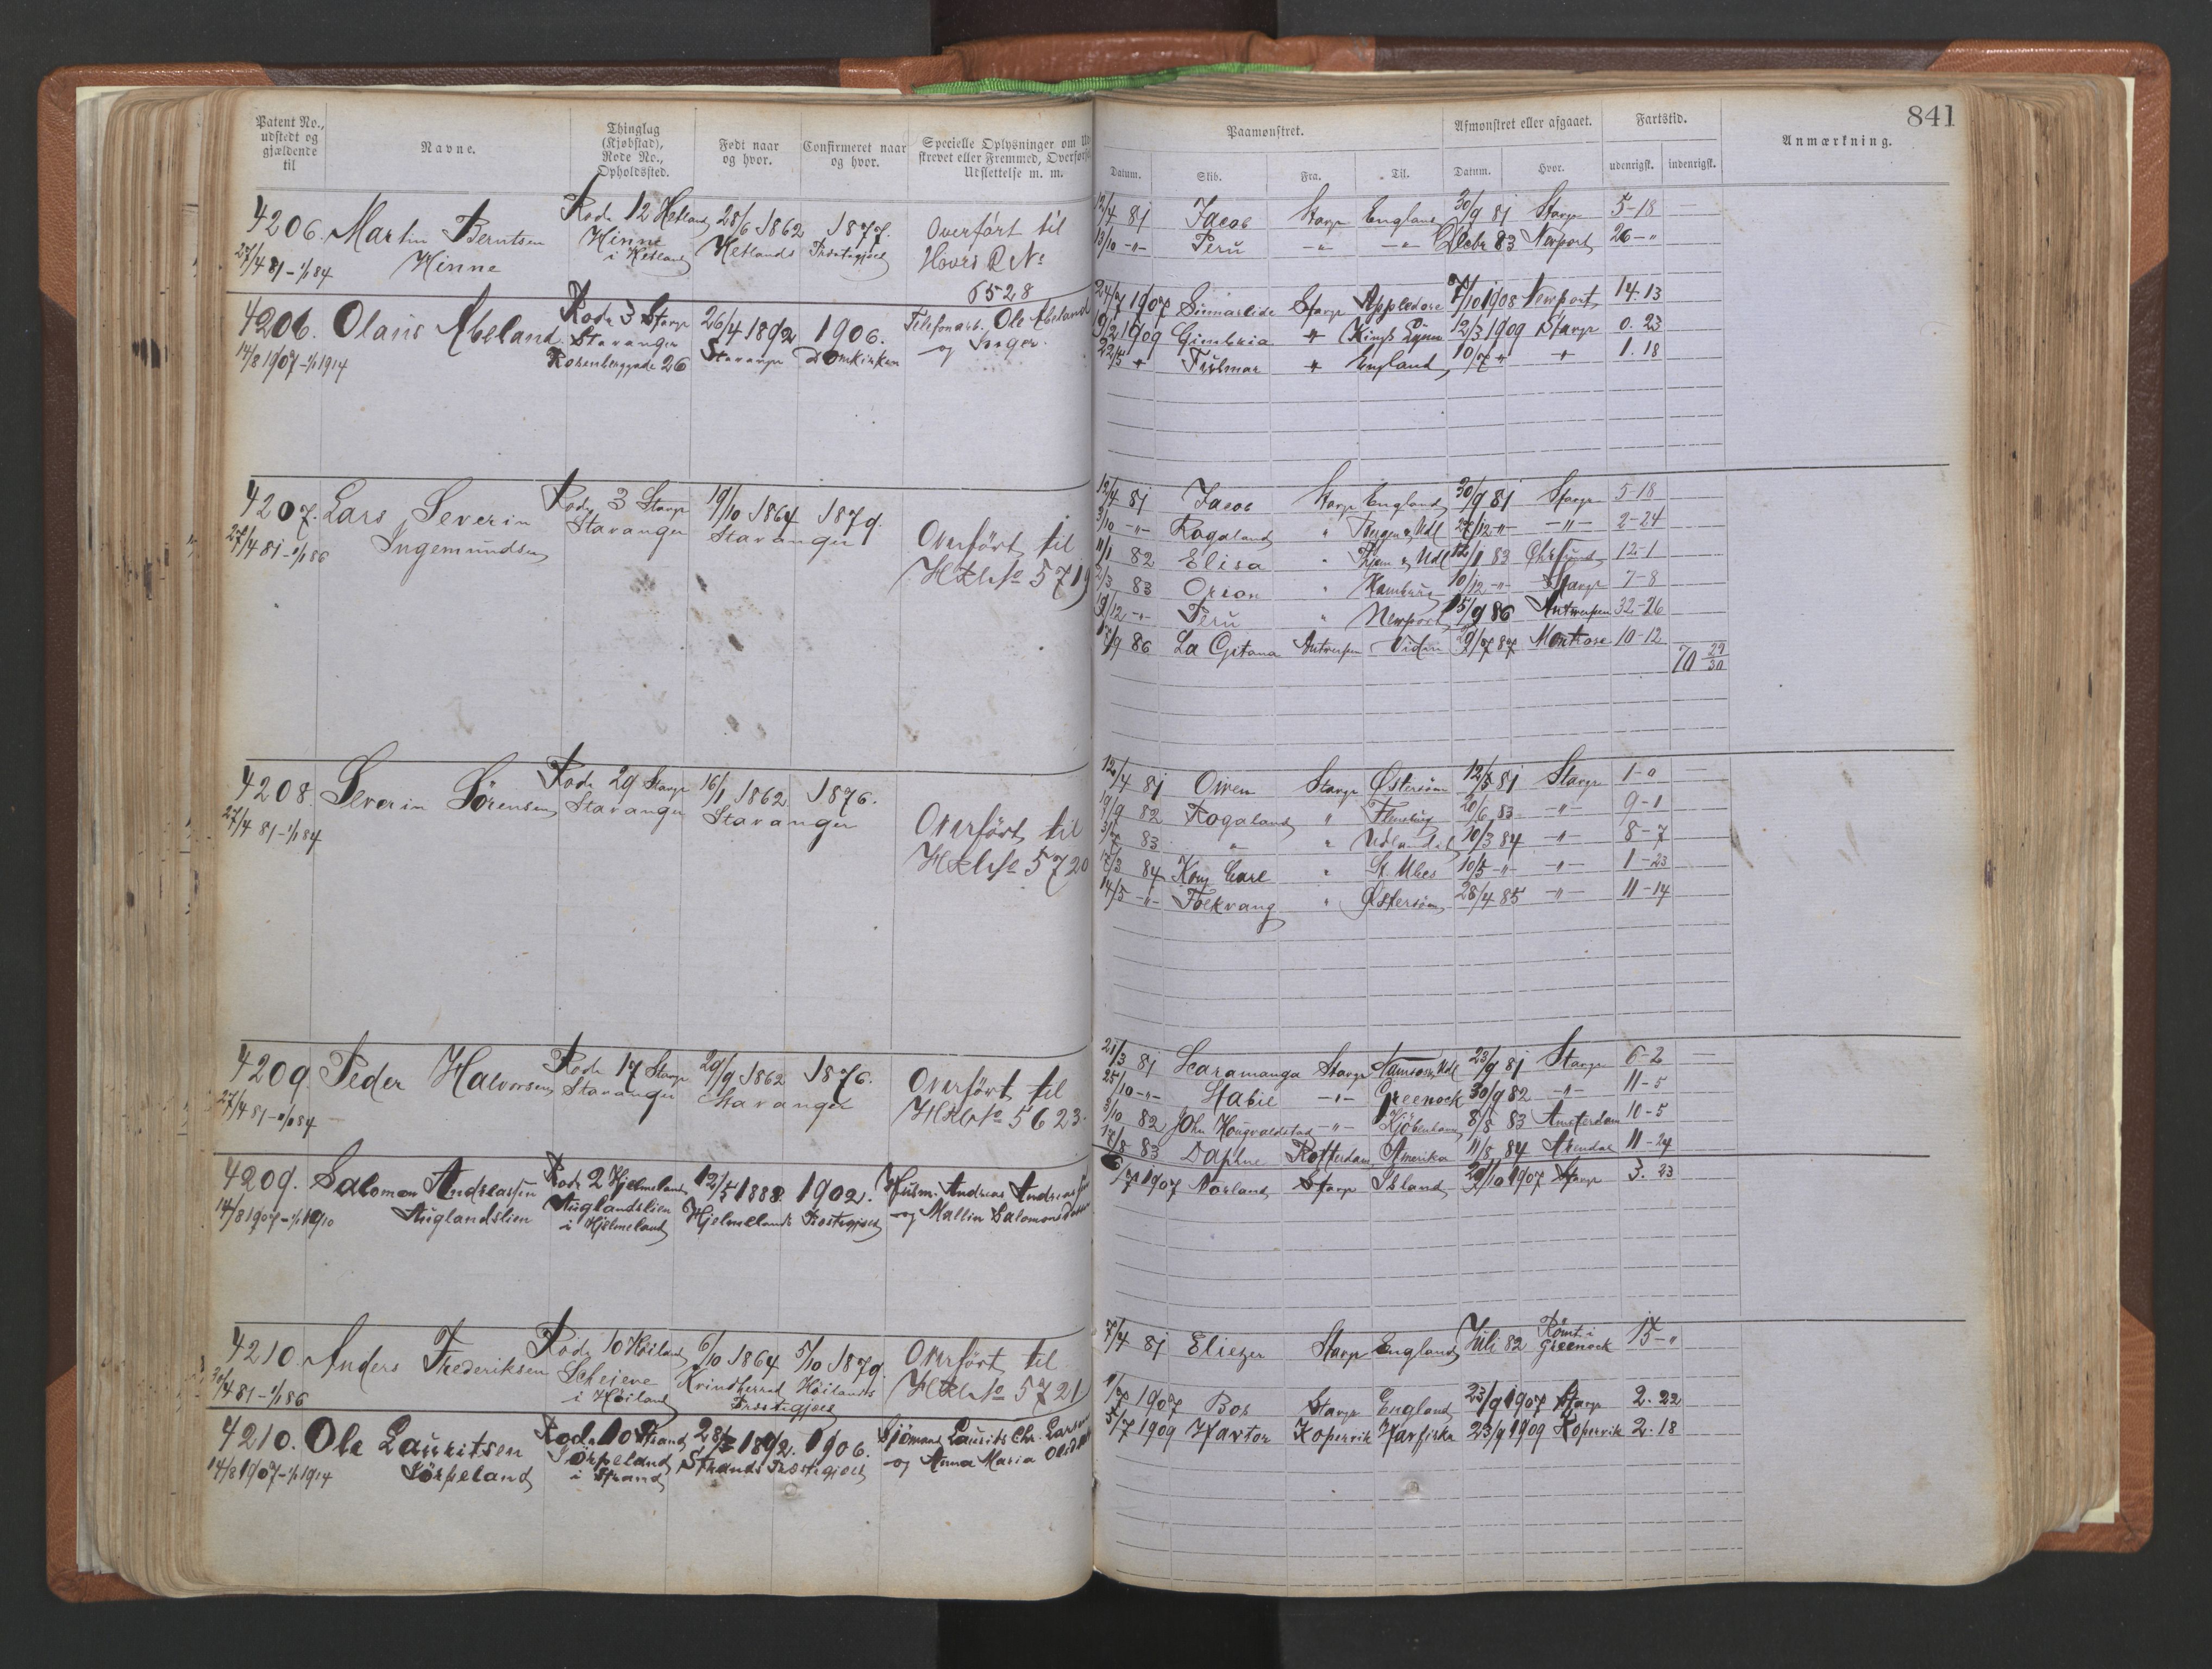 841
Patent No., udstedt og gjældende til
Navne.
Thinglag (Kjøbstad), Rode No., Opholdssted.
Født naar og hvor.
Confirmeret naar og hvor.
Specielle Oplysninger om Ud
strevet eller Fremmed, Overførsel
Udslettelse m. m.
Paamønstret.
Afmønstret eller afgaaet.
Fartstid.
Anmærkning.
Datum. Skib. Fra. Til. Datum. Hvor. udenrigsk. indenrigsk.
4206. Martin Berntsen Rode 12 Hetland 28/6 1862 1877. Overført til
27/4 81 - 1/1 84 Hinne Hinne i Hetland Hetlands Præstegjæld Hoved R No
6528
12/4 81 Jacob Stavgr England 30/9 81 Stavgr 5-18
13/10 -"- Peru -"- -"- Decbr 83 Newport 26-"
4206. Olaus Abeland Rode 3 Stavgr 26/4 1892 1906. Telefonarb. Ole Abeland
14/8 1907 - 1/1 1914 Stavanger Stavanger Domkirken og Inger.
Rosenberggade 26
24/7 1907 Stavgr Appledore 7/10 1908 Newport 14.13
9/2 1909 Gimbria " Kings Lynn 12/3 1909 Stavgr 0.23
22/5 " " England 10/7 " " 1.18
4207. Lars Severin Rode 3 Stavgr 19/10 1864 1879. Overført til
27/4 81 - 1/1 86 Ingemundsen Stavanger Stavanger 5719
12/4 81 Jacob Stavgr England 30/9 81 Stavgr 5-18
3/10 -"- Rogaland " Bergen & Udl 27/12 -"- -"- 2-24
11/1 82 Elisa " & Udl 12/1 83 12-1
2/3 83 Orion " Hamburg 10/12 -"- Stavgr 7-8
19/12 -"- Peru " Newport 15/9 86 Antwerpen 32-26
17/9 86 La Gitana Antwerpen 29/7 87 Montrose 10-12
70 29/30
4208. Severin Sörensen Rode 29 Stavgr 16/1 1862 1876. Overført til
27/4 81 - 1/1 84 Stavanger Stavanger 5720
12/4 81 Stavgr Østersøen 12/5 81 Stavgr 1-0
19/9 82 Rogaland " Flensburg 20/6 83 -"- 9-1
3/7 83 " " Udlandet 10/3 84 -"- 8-7
17/3 84 Kong Carl " St. Ubes 10/5 -"- -"- 1-23
14/5 -"- Folkvang " Østersøen 28/4 85 -"- 11-14
4209. Peder Halvorsen Rode 17 Stavgr 29/9 1862 1876. Overført til
27/4 81 - 1/1 84 Stavanger Stavanger 5623.
21/3 81 Scaramanga Stavgr Udl 23/9 81 Stavgr 6-2
25/10 -"- Habil -"- Greenock 30/9 82 -"- 11-5
3/10 82 John Hougvaldstad -"- Kjöbenhavn 8/8 83 Amsterdam 10-5
17/8 83 Daphne Rotterdam Amerika 11/8 84 Arendal 11-24
4209. Salomon Andreassen Rode 2 Hjelmeland 12/5 1888 1902. Husm. Andreas Andreassen
14/8 1907 - 1/1 1910 Auglandslien Auglandslien i Hjelmeland Hjelmelands Præstegjæld og Mallin Salomonsdatter
6/7 1907 Norland Stavgr Island 29/10 1907 Stavgr 3.23
4210. Anders Frederiksen Rode 10 Höiland 6/10 1864 5/10 1879. Overført til
30/4 81 - 1/1 86 Scheieve i Höiland Kvindherred Höilands Præstegjæld 5721
7/4 81 Eliezer Stavgr England Juli 82 Römt i Greenock 15-"
4210. Ole Lauritsen Rode 10 Strand 28/3 1892. 1906. Sjömand Laurits Chr. Larsen
14/8 1907 - 1/1 1914 Jörpeland Jörpeland i Strand Strands Præstegjæld og Anna Maria
1/7 1907 Bob Stavgr England 23/9 1907 Stavgr 2.22
5/7 1909 Havtor Kopervik Havfiske 23/9 1909 Kopervik 2.18